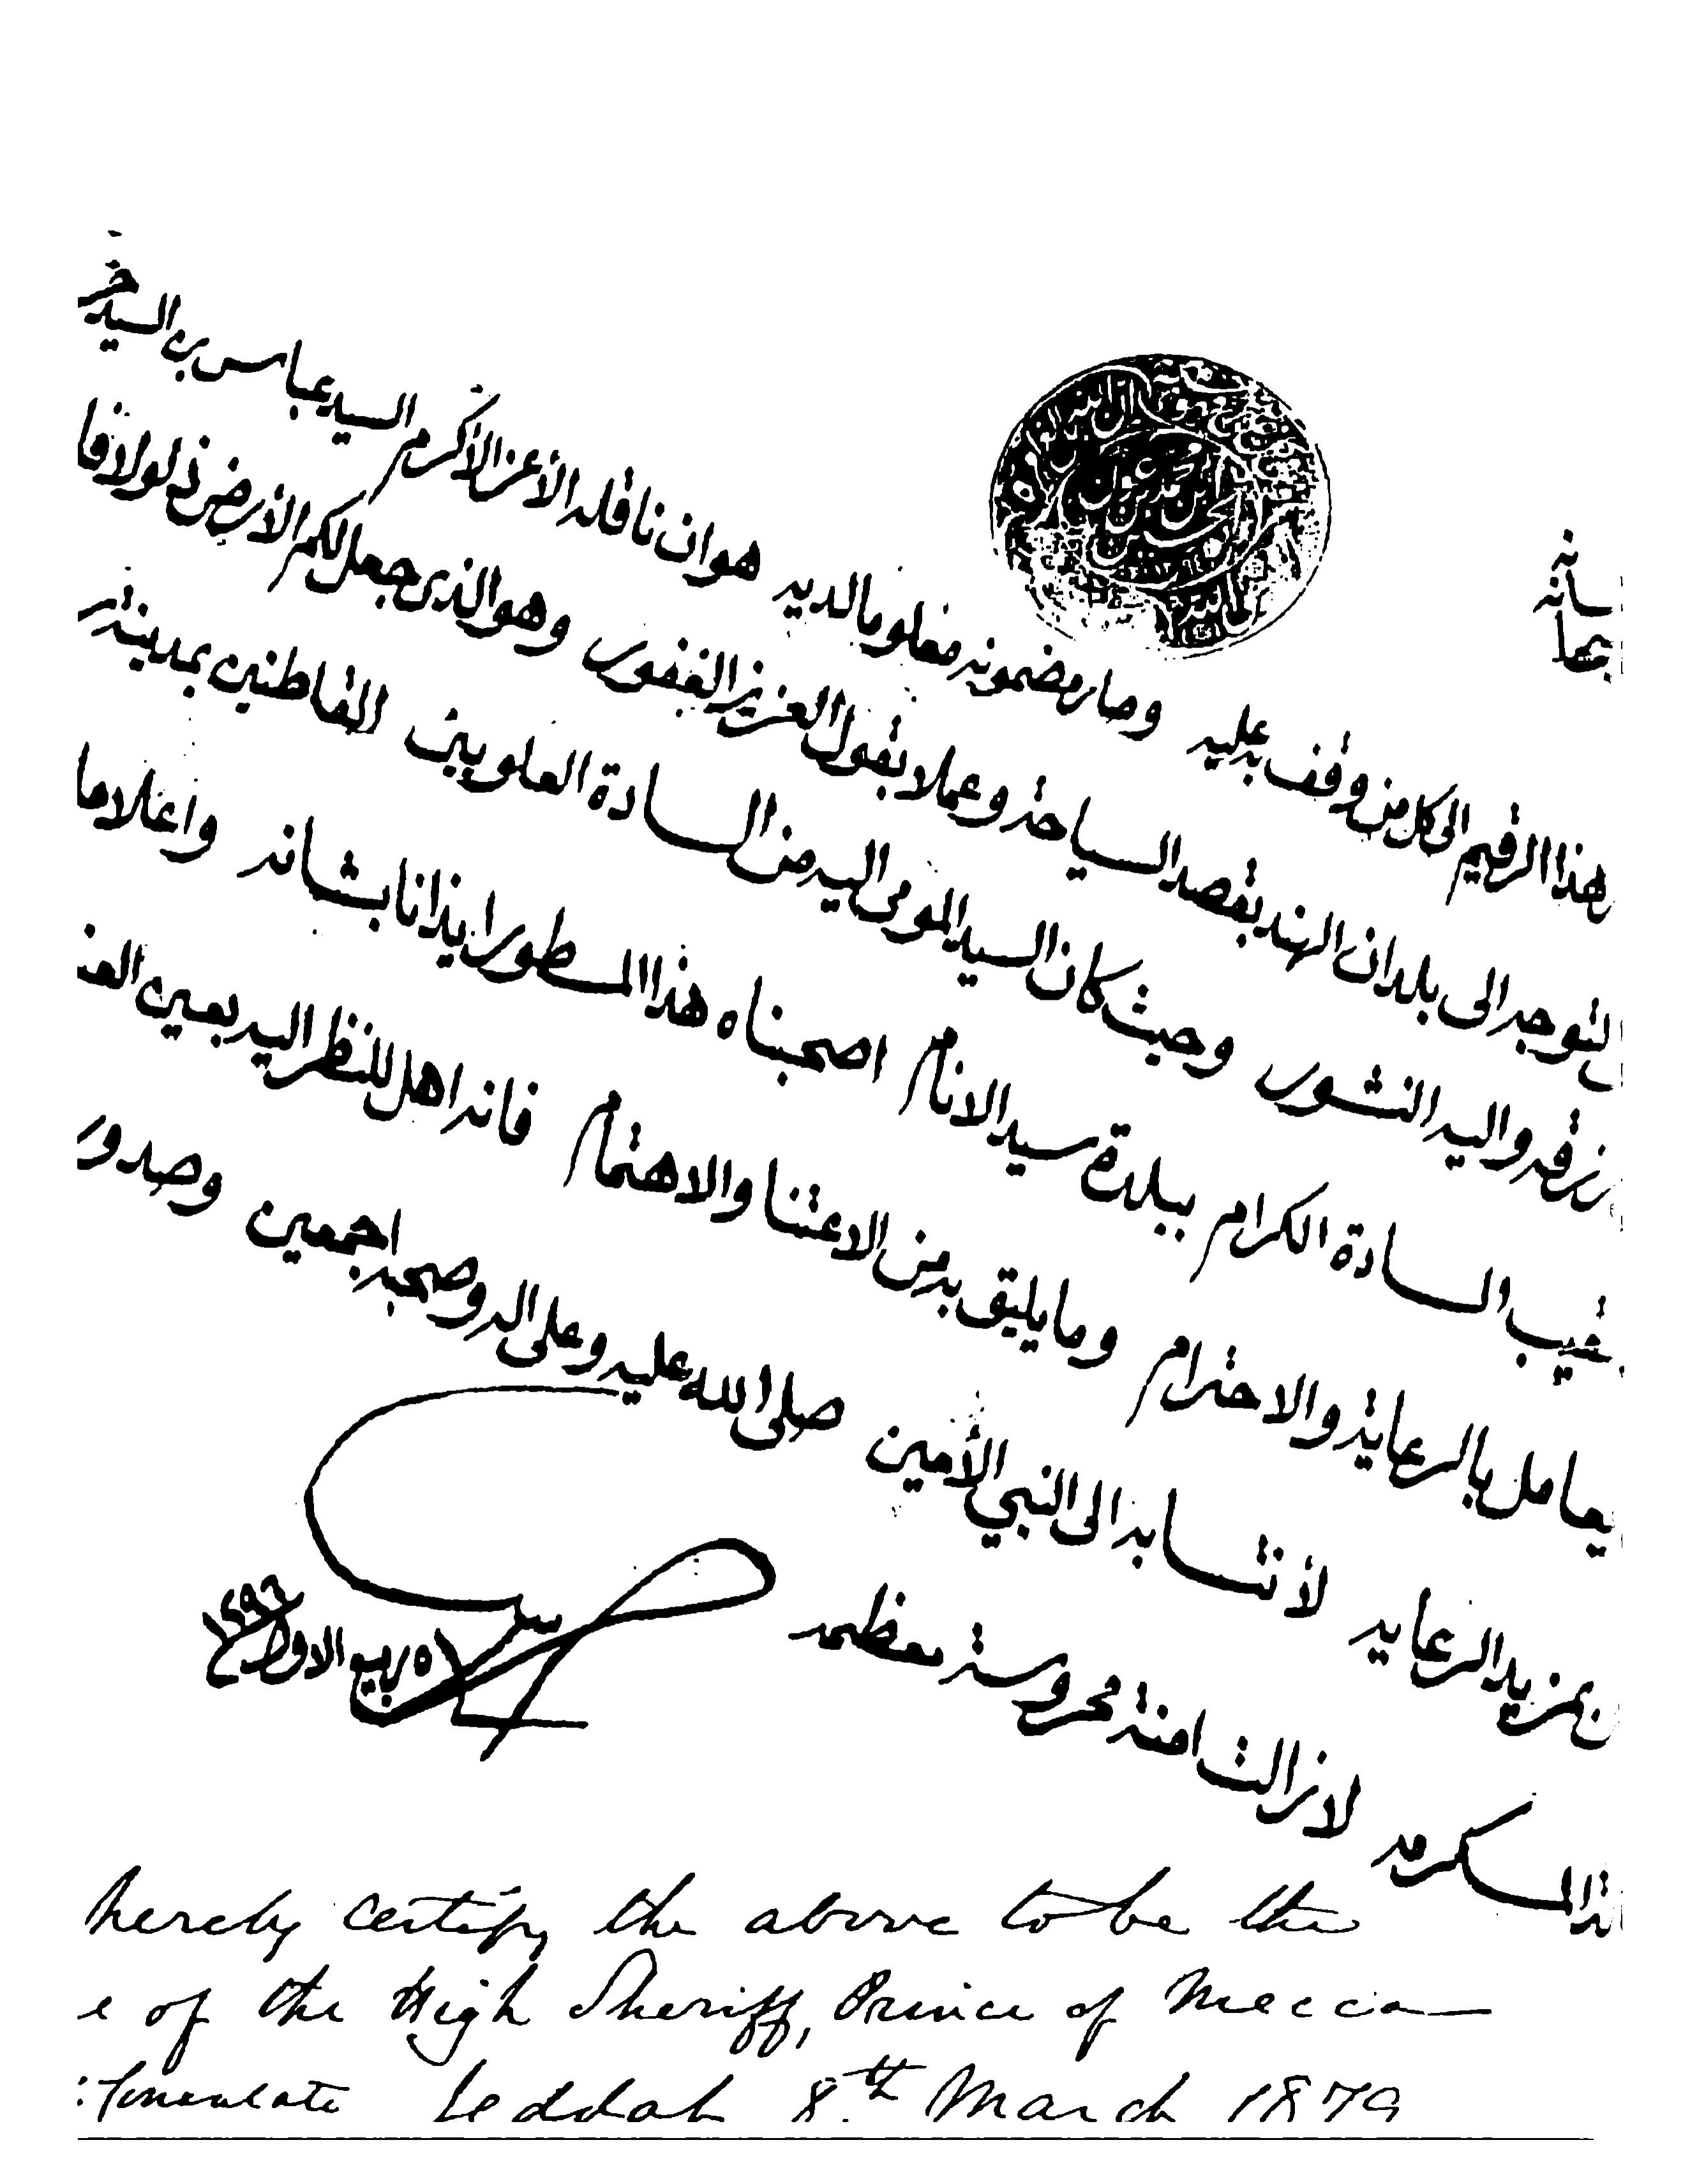 هذا الرقيم الى كل من وقف به عليه وصار مضمونه معلوما لديه هو ان ناقله الاعز الاكرم السيد عباس بن السيد
التوجه الى بلدان الهند بقصد السياحة وعملا بقول العزيز الغفور وهو الذى جعل لكم الارض ذلولا فا
رزقه واليه النشور وحيث كان السيد المومى اليه من السادة العلويين القاطنين بمدينة
السادة الكرام ببلدة سيد الانام اصحبناه هذا المسطور ايذانا بشانه واعلاما
يعامل بالرعاية والاحترام وما يليق به من الاعتنا والاهتمام فانه اهل للنظر اليه بعين
بمزيد الرعايه لأنتسابه الى النبي الأمين صلى الله عليه وعلى اله وصحبه اجمعين وصدور
المكرمه لازالت امنة محروسة معظمه
٥ ربيع الاول ١٢٩٦
hereby certify the above to be the
e of the High Sheriff, Prince of Mecca
Consulate Jeddah 8th March 1879